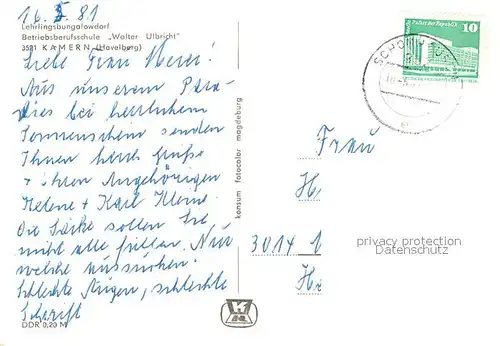 16. 5. 81
Lehrlingsbungalowdorf
Betriebsberufsschule „Walter Ulbricht"
3521 KAMERN (Havelberg)
Liebe Frau
Aus unserem Para-
dies bei herrlichem
Sonnenschein senden
Ihnen herzl. Grüße
+ Ihren Angehörigen
Helene + Karl
Die Säcke sollen Sie
nicht alle füllen. Nur
welche aussuchen.
Schlechte Augen, schlechte
Schrift
DDR 0,20 M
konsum fotocolor magdeburg
Palast der Republik
10
Frau
H
3014 1
H
privacy protection
Datenschutz